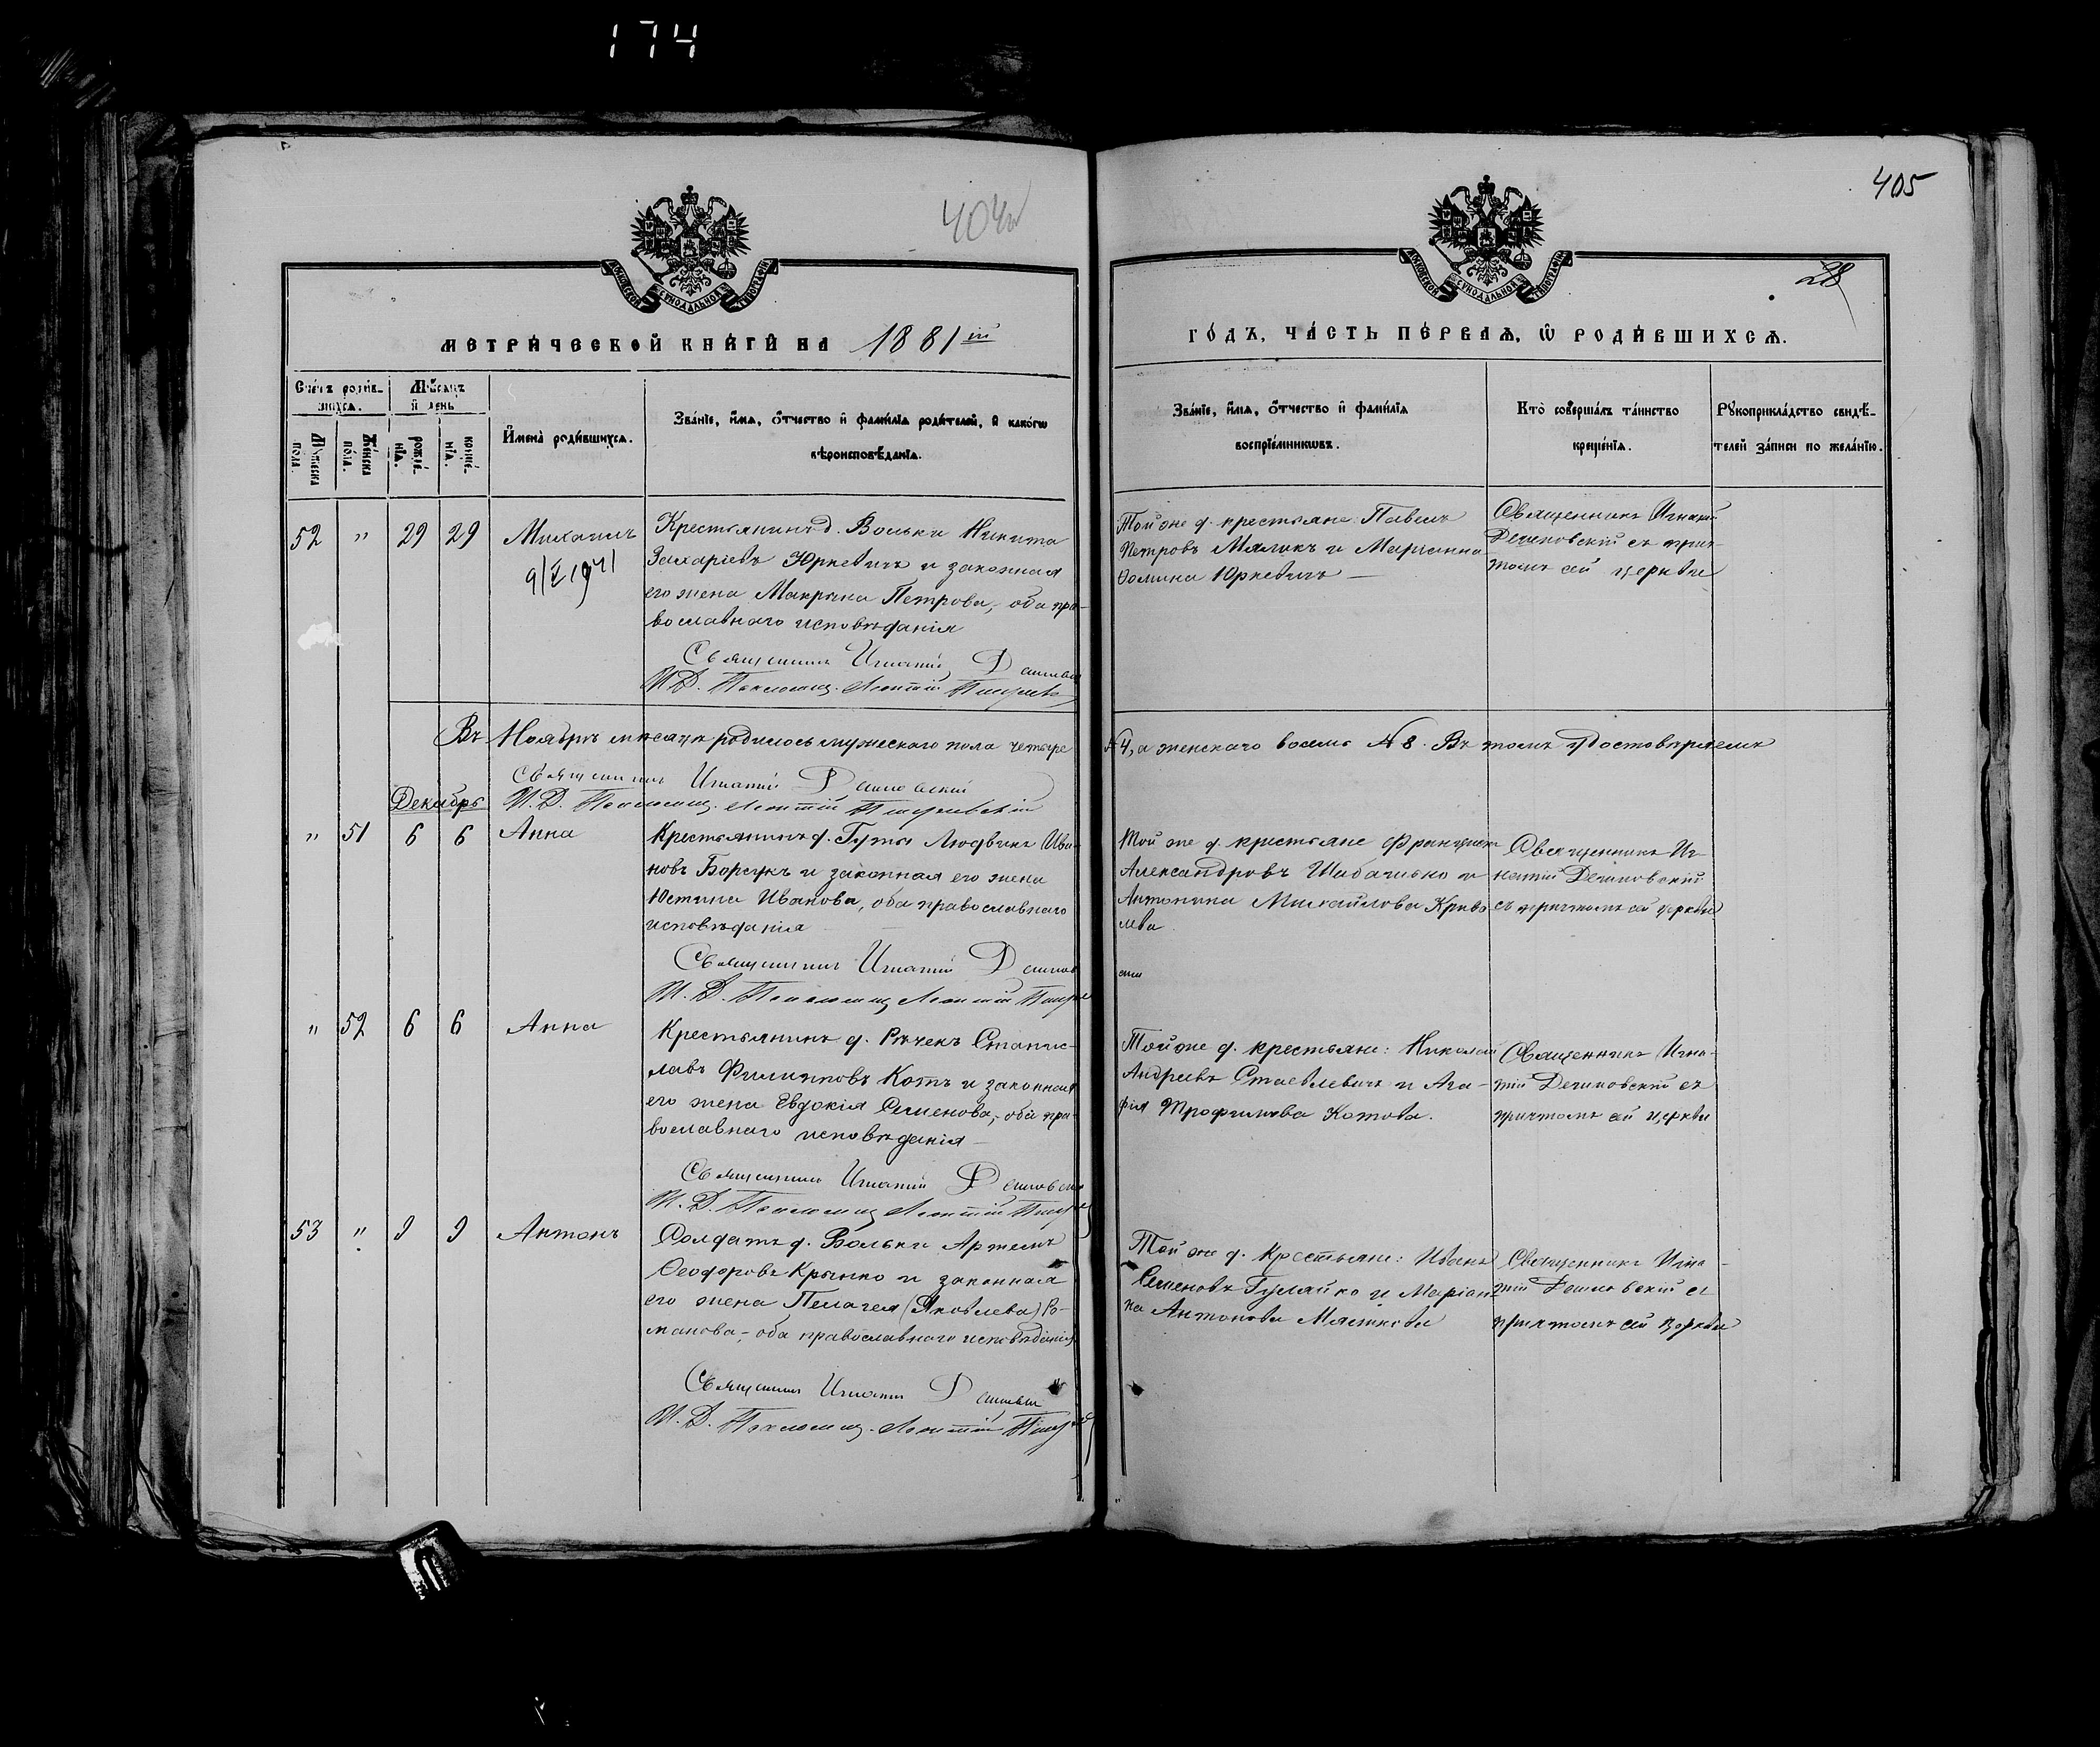 174
404
405
28
МОСКОВСКОЙ СУНОДАЛЬНОЙ ТИПОГРАФІИ
МОСКОВСКОЙ СУНОДАЛЬНОЙ ТИПОГРАФІИ
МЕТРИ́ЧЕСКОЙ КНИ́ГИ НА 1881 ій
ГО́ДЪ, ЧА́СТЬ ПЕ́РВАѦ, Ѡ РОДИ́ВШИХСѦ.
Сче́тъ роди́в-
шихсѧ.
Мѣ́сѧцъ
и де́нь
Му́жеска
по́ла.
Же́нска
по́ла.
рожде́-
нїѧ.
креще́-
нїѧ.
Имена̀ роди́вшихсѧ.
Зва́нїе, и́мѧ, ѻ́тчество и фами́лїѧ роди́телей, и како́гѡ
вѣроисповѣ́данїѧ.
Зва́нїе, и́мѧ, ѻ́тчество и фами́лїѧ
воспрїе́мникѡвъ.
Кто̀ соверша́лъ та́инство
креще́нїѧ.
Рꙋкоприкла́дство свидѣ́-
телей за́писи по жела́нїю.
52 " 29 29 Михаилъ
9/X 1941
Крестьянинъ д. Вольки Никита
Захаріевъ Юркевичъ и законная
его жена Макрина Петрова, оба пра-
вославнаго исповѣданія
Священникъ Игнатій
И.Д. Псаломщ. Леонтій
Той же д. крестьяне: Павелъ
Петровъ Малюкъ и Маріанна
Ѳомина Юркевичъ
Священникъ Игнатій
съ прич-
томъ сей церкви
Въ Ноябрѣ мѣсяцѣ родилось мужескаго пола четыре № 4, а женскаго восемь № 8. Въ томъ удостовѣряемъ
Священникъ Игнатій
Декабрь И.Д. Псаломщ. Леонтій
" 51 6 6 Анна
Крестьянинъ д. Гуты Людвикъ Ива-
новъ Борсукъ и законная его жена
Юстина Иванова, оба православнаго
исповѣданія
Священникъ Игнатій
И.Д. Псаломщ. Леонтій
Той же д. крестьяне Францискъ
Александровъ и
Антонина Михайлова
Священникъ Иг-
натій
съ причтомъ сей церкви
" 52 6 6 Анна
Крестьянинъ д. Рѣчекъ Станис-
лавъ Филипповъ Котъ и законная
его жена Евдокія Семенова, оба пра-
вославнаго исповѣданія
Священникъ Игнатій
И.Д. Псаломщ. Леонтій
Той же д. крестьяне: Николай
Андреевъ и Ага-
фія Трофимова Котова.
Священникъ Игна-
тій съ
причтомъ сей церкви
53 " 9 9 Антонъ
Солдатъ д. Вольки Артемъ
Ѳеодоровъ Крынко и законная
его жена Пелагея (Яковлева) Ро-
манова, оба православнаго исповѣданія
Священникъ Игнатій
И.Д. Псаломщ. Леонтій
Той же д. крестьяне: Иванъ
Семеновъ Гуляйко и Маріан-
на Антонова
Священникъ Игна-
тій съ
причтомъ сей церкви